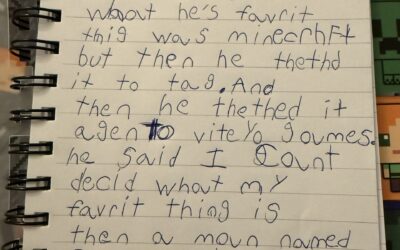 whoat he's favrit
thig was minecrhFt
but then he thethd
it to tag. And
then he thethed it
agen to viteYo goumes.
he said I Count
decid whout my
favrit thing is
then a moun named